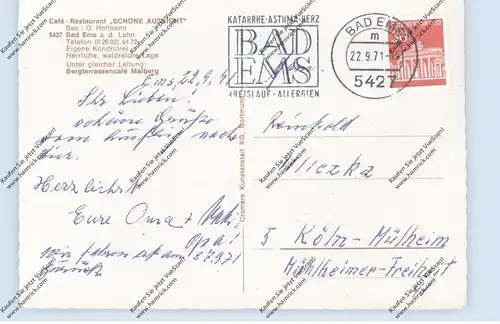 Café - Restaurant „SCHÖNE AUSSICHT"
Bes.: G. Hofmann
5427 Bad Ems a. d. Lahn
Telefon (0 26 03) 61 72
Eigene Konditorei
Herrliche, waldreiche Lage
Unter gleicher Leitung:
Bergterrassencafé Malberg
Ems, 22.9.71
Ihr Lieben!
schöne Grüße
vom Ausflug nach
hier.
Herzlichst
Eure Oma +
Opa!
Wir fahren erst am 27.9.71
zurück
Cramers Kunstanstalt KG, Dortmund
KATARRHE·ASTHMA·HERZ
BAD
EMS
KREISLAUF·ALLERGIEN
BAD EMS
m
22.9.71
5427
Reinhold
5 Köln-Mülheim
Mühlheimer-Freiheit
Kaufen Sie jetzt VueScan!
www.hamrick.com